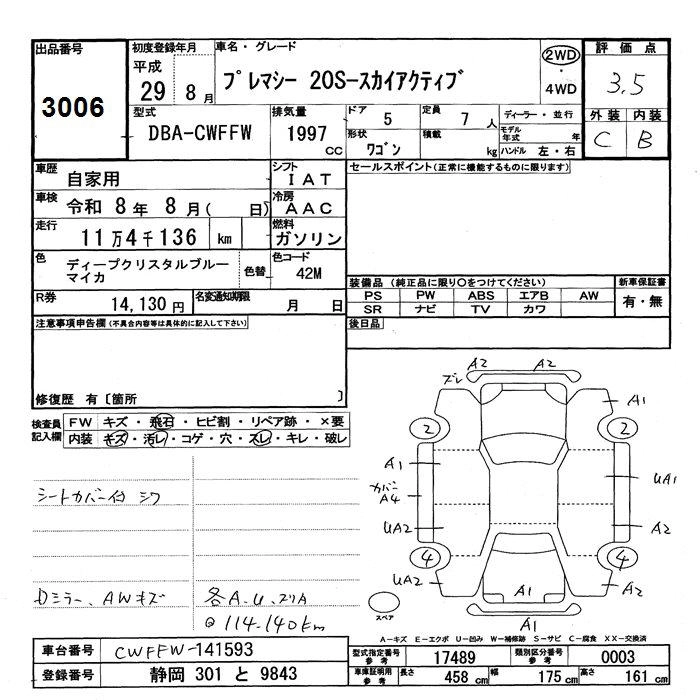 出品番号
3006
初度登録年月
平成
29 8 月
車名・グレード
プレマシー 20S-スカイアクティブ
2WD
・
4WD
評価点
3.5
外装 内装
C B
型式
DBA-CWFFW
排気量
1997
CC
ドア
5
定員
7 人
ディーラー・並行
モデル年式 年
形状
ワゴン
積載
kg
ハンドル 左・右
車歴
自家用
シフト
IAT
セールスポイント(正常に機能するものに限ります)
車検
令和 8 年 8 月( 日)
冷房
AAC
走行
11万4千136 km
燃料
ガソリン
色
ディープクリスタルブルー
マイカ
色替
色コード
42M
装備品 (純正品に限り○をつけてください)
新車保証書
PS PW ABS エアB AW
有・無
SR ナビ TV カワ
R券
14,130 円
名変通知期限
月 日
後日品
注意事項申告欄(不具合内容等は具体的に記入して下さい)
修復歴 有〔箇所 〕
検査員
記入欄
FW キズ・飛石・ヒビ割・リペア跡・×要
内装 キズ・汚レ・コゲ・穴・スレ・キレ・破レ
シートカバー付 シワ
Dミラー、AWキズ
各A・U、スリA
@114-140km
ズレ
A2 A2
A1
2 2
A1
カバー
A4
UA1
UA2
A2
4 4
UA2
A1
A2
A1
スペア
A-キズ E-エクボ U-凹み W-補修跡 S-サビ C-腐食 XX-交換済
車台番号
CWFFW-141593
型式指定番号
参考
17489
類別区分番号
参考
0003
登録番号
静岡 301 と 9843
車庫証明用
参考
長さ
458 cm
幅
175 cm
高さ
161 cm